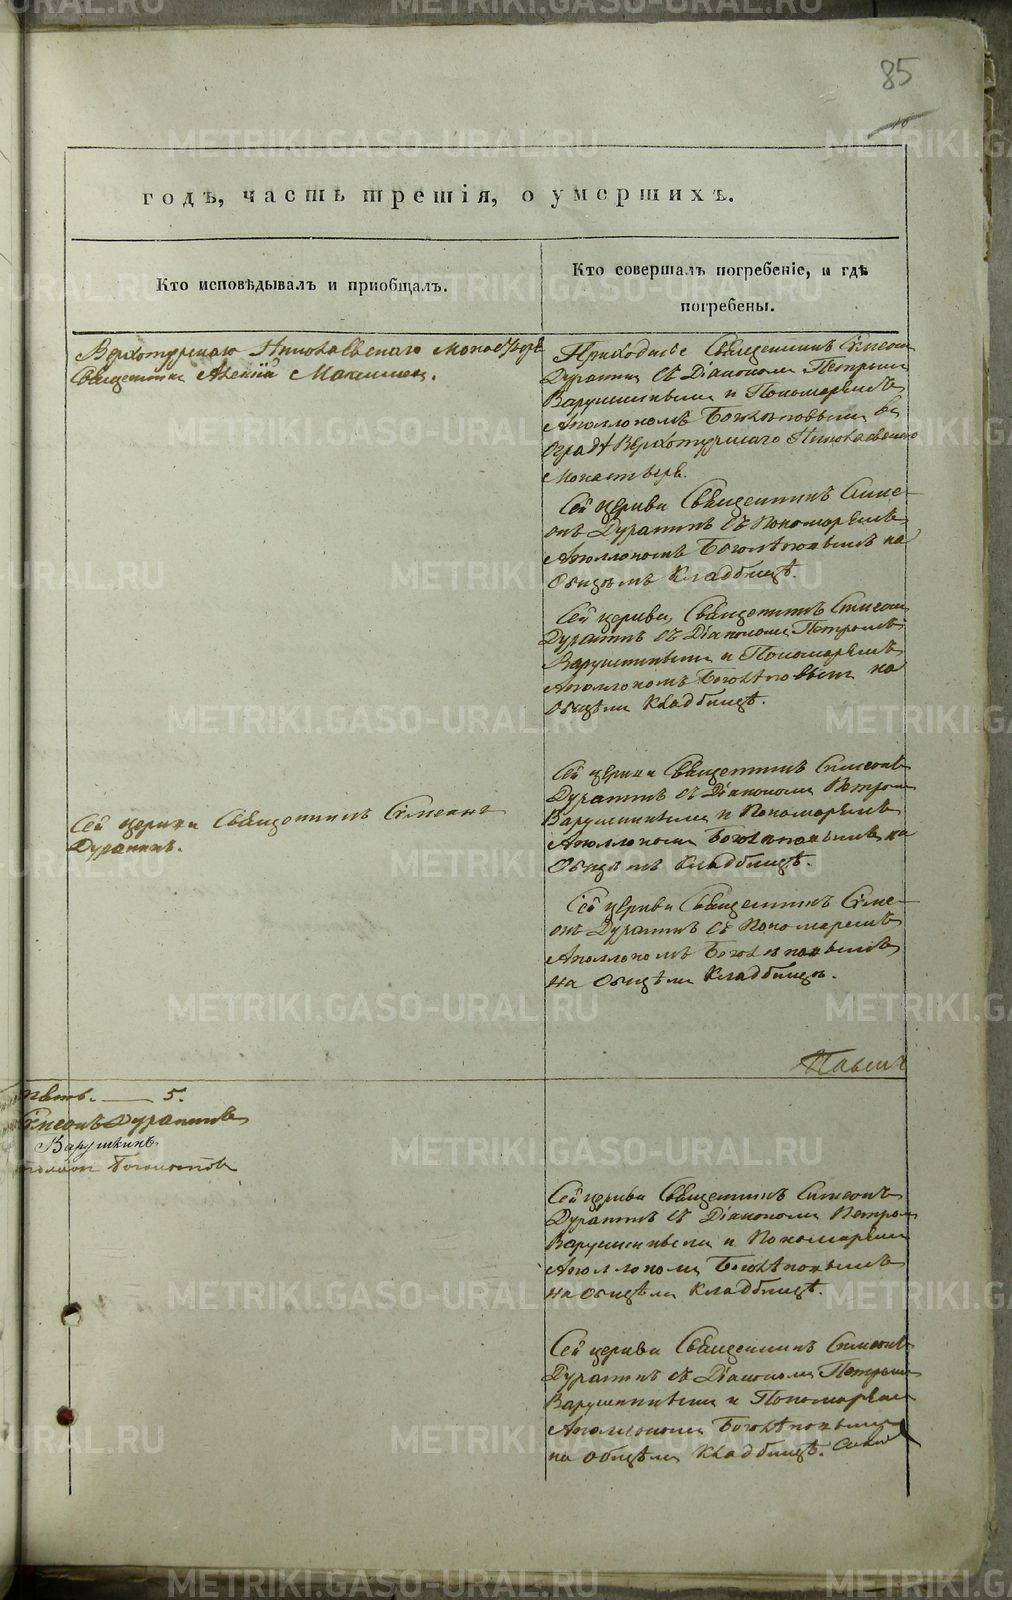 85
годъ, часть третія, о умершихъ.
Кто исповѣдывалъ и пріобщалъ.
Кто совершалъ погребеніе, и гдѣ
погребены.
Верхотурскаго Николаевскаго Монастыря
Священникъ Алексій
Приходскіе Священникъ Симеонъ
Дуракинъ съ Діакономъ Петромъ
Варушкинымъ и Пономаремъ
Аполлономъ въ
оградѣ Верхотурскаго Николаевскаго
Монастыря.
Сей церкви Священникъ Симе-
онъ Дуракинъ съ Пономаремъ
Аполлономъ на
Общемъ Кладбищѣ.
Сей церкви Священникъ Симеонъ
Дуракинъ съ Діакономъ Петромъ
Варушкинымъ и Пономаремъ
Аполлономъ на
Общемъ Кладбищѣ.
Сей церкви Священникъ Симеонъ
Дуракинъ.
Сей церкви Священникъ Симеонъ
Дуракинъ съ Діакономъ Петромъ
Варушкинымъ и Пономаремъ
Аполлономъ на
Общемъ Кладбищѣ.
Сей церкви Священникъ Симе-
онъ Дуракинъ съ Пономаремъ
Аполлономъ
на Общемъ Кладбищѣ.
5.
Дуракинъ
Варушкинъ
Сей церкви Священникъ Симеонъ
Дуракинъ съ Діакономъ Петромъ
Варушкинымъ и Пономаремъ
Аполлономъ
на Общемъ Кладбищѣ.
Сей церкви Священникъ Симеонъ
Дуракинъ съ Діакономъ Петромъ
Варушкинымъ и Пономаремъ
Аполлономъ
на Общемъ Кладбищѣ.
METRIKI.GASO-URAL.RU